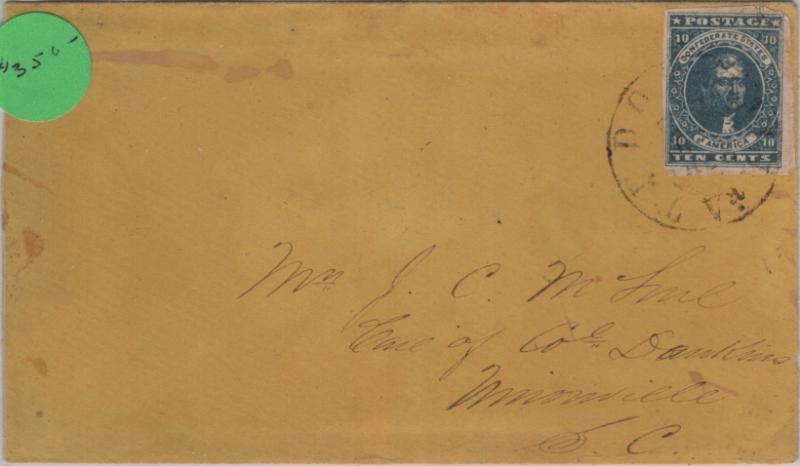 #35⁰⁰
★ POSTAGE ★
10 10
CONFEDERATE STATES
OF AMERICA
10 10
TEN CENTS
Mrs J. C. M
Care of Col. Dawkins
Unionville
S. C.